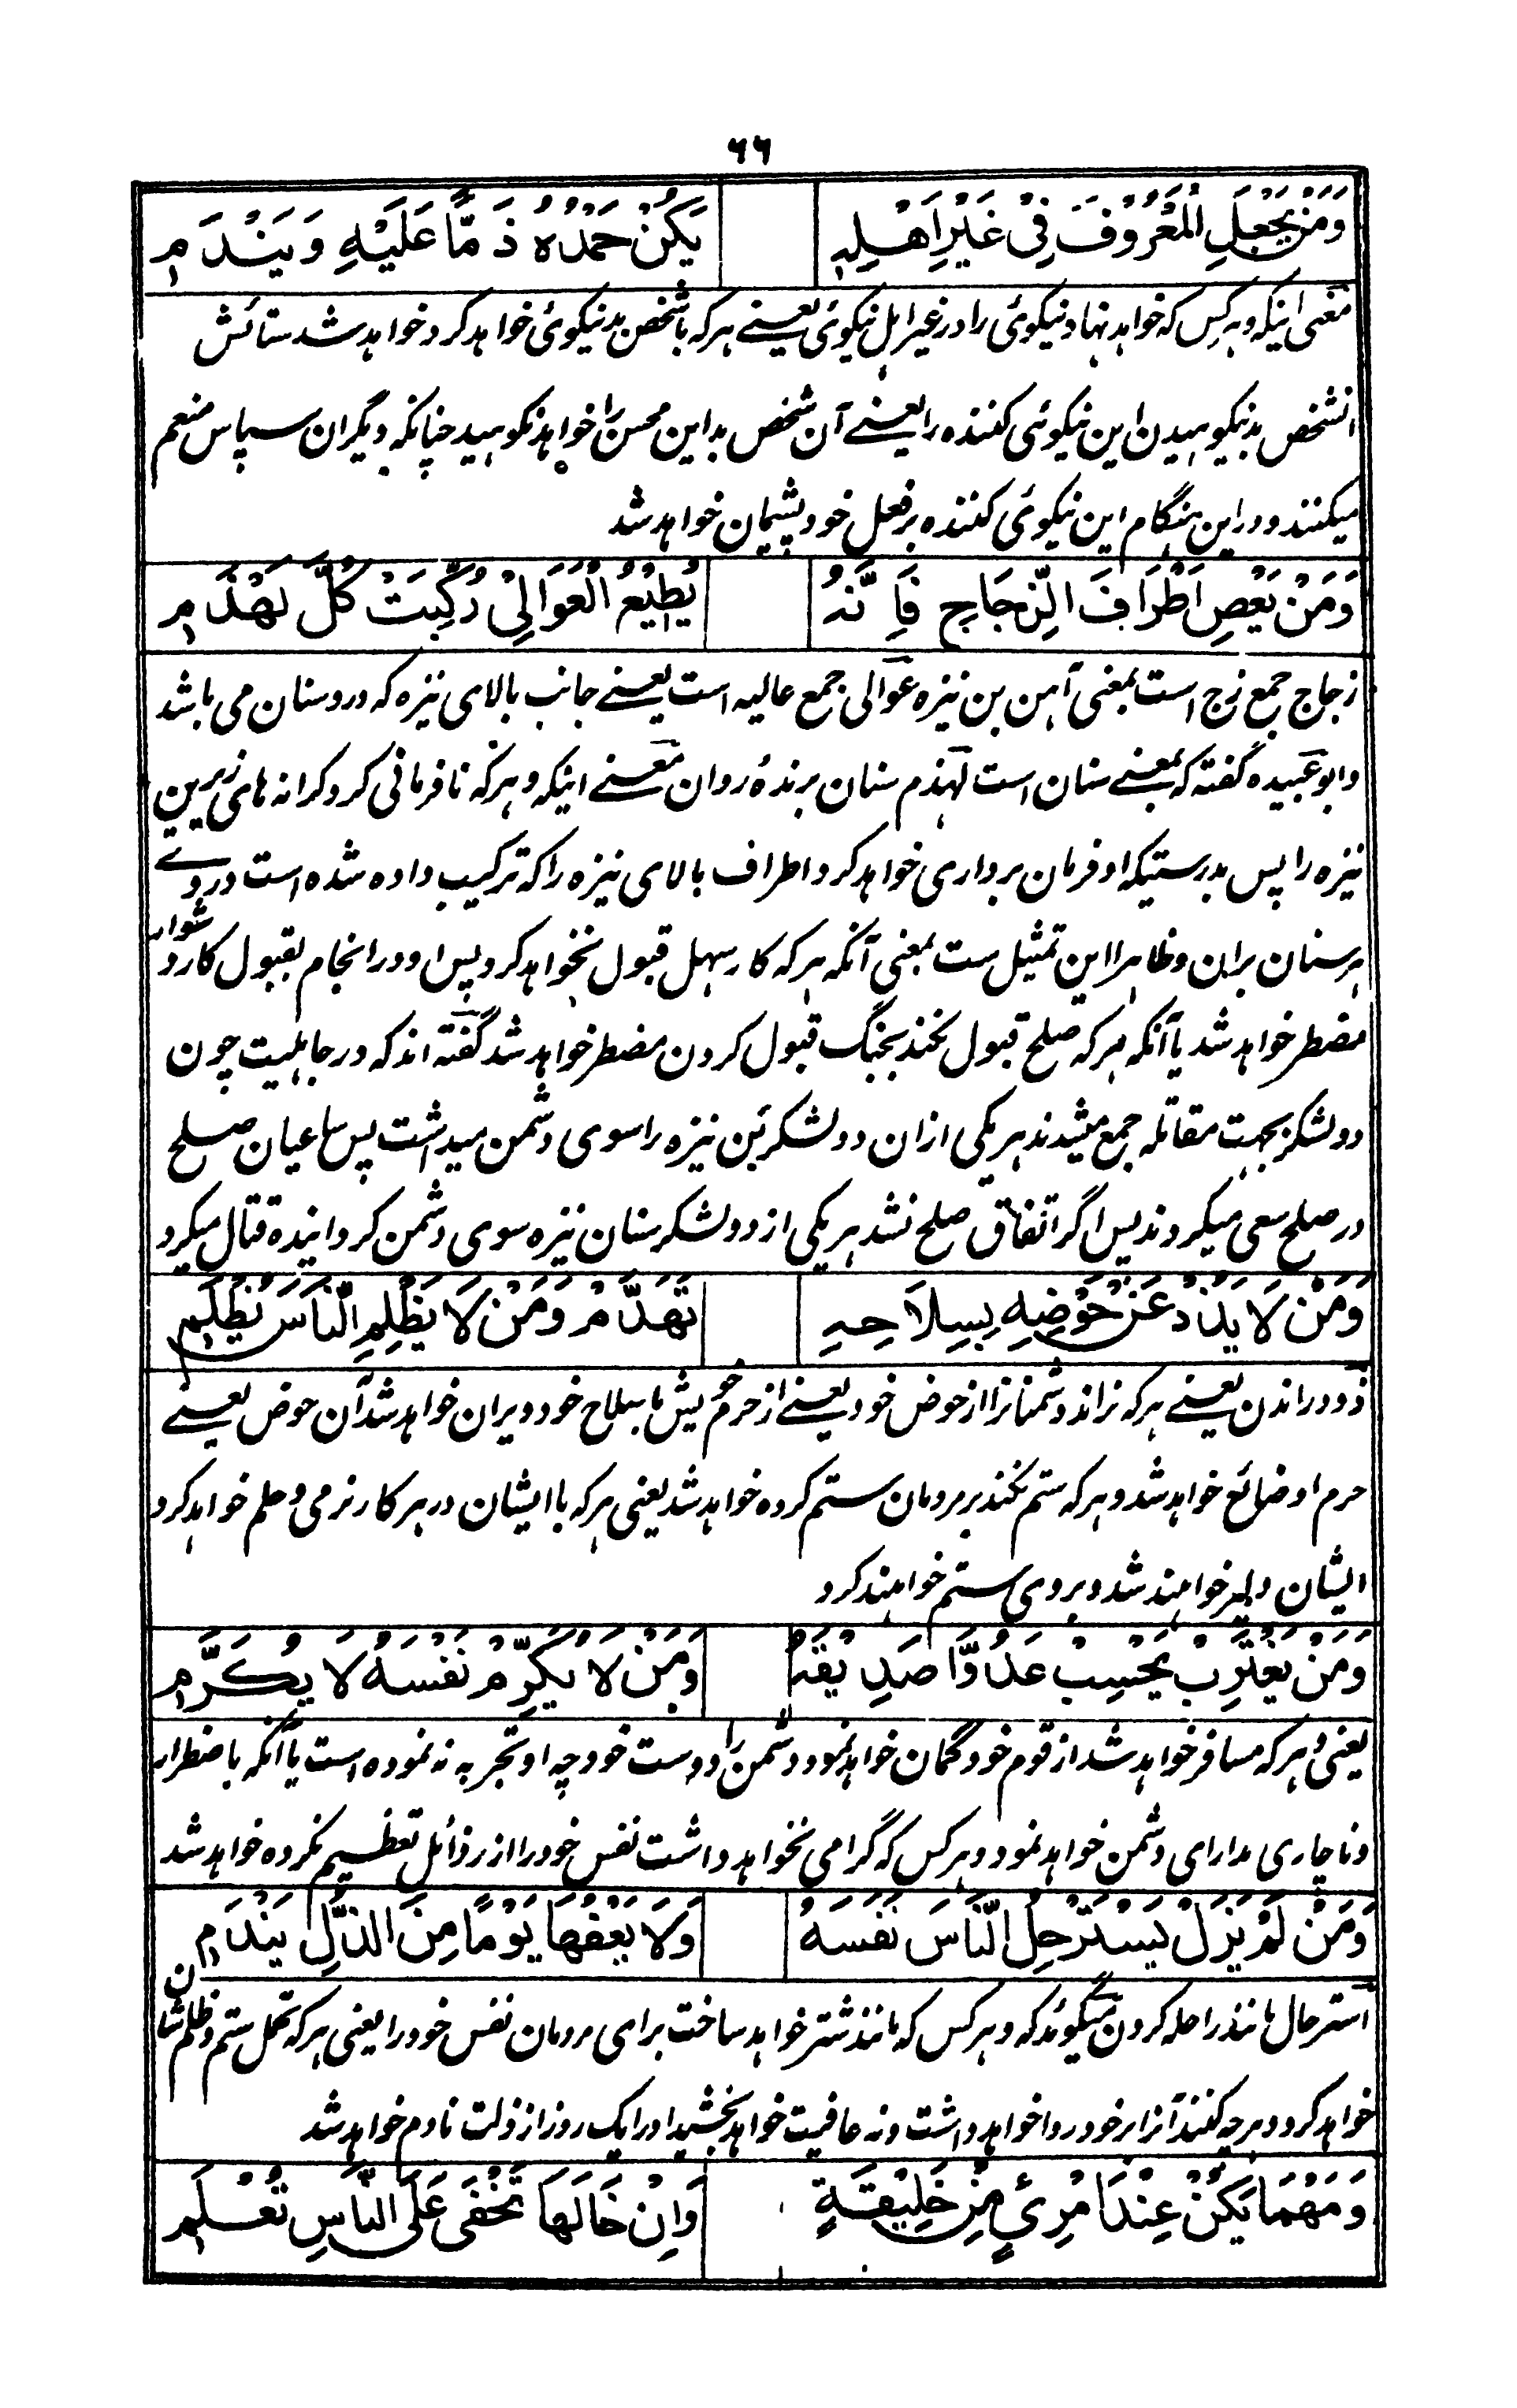 ۶۶
وَمَنْ يَجْعَلِ الْمَعْرُوفَ فِيْ غَيْرِ اَهْلِهٖ يَكُنْ حَمْدُهُ ذَمًّا عَلَيْهِ وَيَنْدَمِ
معنی اینکه و هر کس که خواهد نهاد نیکوئی را در غیر اهل نیکوئی یعنے هر که باشخص بد نیکوئی خواهد کرد خواهد شد ستائش
انشخص بد نکوهیدن این نیکوئی کننده را یعنے آن شخص بد این محسن را خواهد نکوهید چنانکه دیگران سپاس منعم
میکنند و در این هنگام این نیکوئی کننده بر فعل خود پشیمان خواهد شد
وَمَنْ يَعْصِ اَطْرَافَ الزِّجَاجِ فَاِنَّهُ يُطِيْعُ الْعَوَالِيْ رُكِّبَتْ كُلَّ لَهْذَمِ
زجاج جمع زج است بمعنی آهن بن نیزه عوالی جمع عالیه است یعنے جانب بالای نیزه که در و سنان می باشد
و ابو عبیده گفته که بمعنے سنان است لهذم سنان برندۀ روان معنے اینکه و هر که نافرمانی کرد کرانه های زیرین
نیزه را پس بدرستیکه او فرمان برداری خواهد کرد اطراف بالای نیزه را که ترکیب داده شده است در وے
هر سنان بران و ظاهرا این تمثیل ست بمعنی آنکه هر که کار سهل قبول نخواهد کرد پس او در انجام بقبول کار دشوار
مضطر خواهد شد یا آنکه هر که صلح قبول نکند بجنگ قبول کردن مضطر خواهد شد گفته اند که در جاهلیت چون
دو لشکر بجهت مقاتله جمع میشدند هر یکی ازان دو لشکر بن نیزه را سوی دشمن میداشت پس ساعیان صلح
در صلح سعی میکردند پس اگر اتفاق صلح نشد هر یکی از دو لشکر سنان نیزه سوی دشمن گردانیده قتال میکرد
وَمَنْ لَا يَذُدْ عَنْ حَوْضِهٖ بِسِلَاحِهٖ تَهَدَّمْ وَمَنْ لَا يَظْلِمِ النَّاسَ يُظْلَمِ
ذود راندن یعنے هر که نراند دشمنانرا از حوض خود یعنے از حرم خویش با سلاح خود ویران خواهد شد آن حوض یعنے
حرم او ضائع خواهد شد و هر که ستم نکند بر مردمان ستم کرده خواهد شد یعنی هر که با ایشان در هر کار نرمی و حلم خواهد کرد
ایشان دلیر خواهند شد و بروی ستم خواهند کرد
وَمَنْ يَغْتَرِبْ يَحْسِبْ عَدُوًّا صَدِيْقَهُ وَمَنْ لَا يُكَرِّمْ نَفْسَهُ لَا يُكَرَّمِ
یعنی و هر که مسافر خواهد شد از قوم خود گمان خواهد نمود دشمن را دوست خود چه او تجربه نه نموده است یا آنکه باضطرار
و ناچاری مدارای دشمن خواهد نمود و هر کس که گرامی نخواهد داشت نفس خود را از رذائل تعظیم نکرده خواهد شد
وَمَنْ لَمْ يَزَلْ يَسْتَرْحِلُ النَّاسَ نَفْسَهُ وَلَا يُعْفِهَا يَوْمًا مِنَ الذُّلِّ يَنْدَمِ
استرحال مانند راحله کردن میگوید که و هر کس که مانند شتر خواهد ساخت برای مردمان نفس خود را یعنی هر که تحمل ستم و ظلم شان
خواهد کرد و هر چه کنند آنرا بر خود روا خواهد داشت و نه عافیت خواهد بخشید او را یک روز از ذلت نادم خواهد شد
وَمَهْمَا يَكُنْ عِنْدَ امْرِئٍ مِنْ خَلِيْقَةٍ وَاِنْ خَالَهَا تَخْفٰى عَلَى النَّاسِ تُعْلَمِ